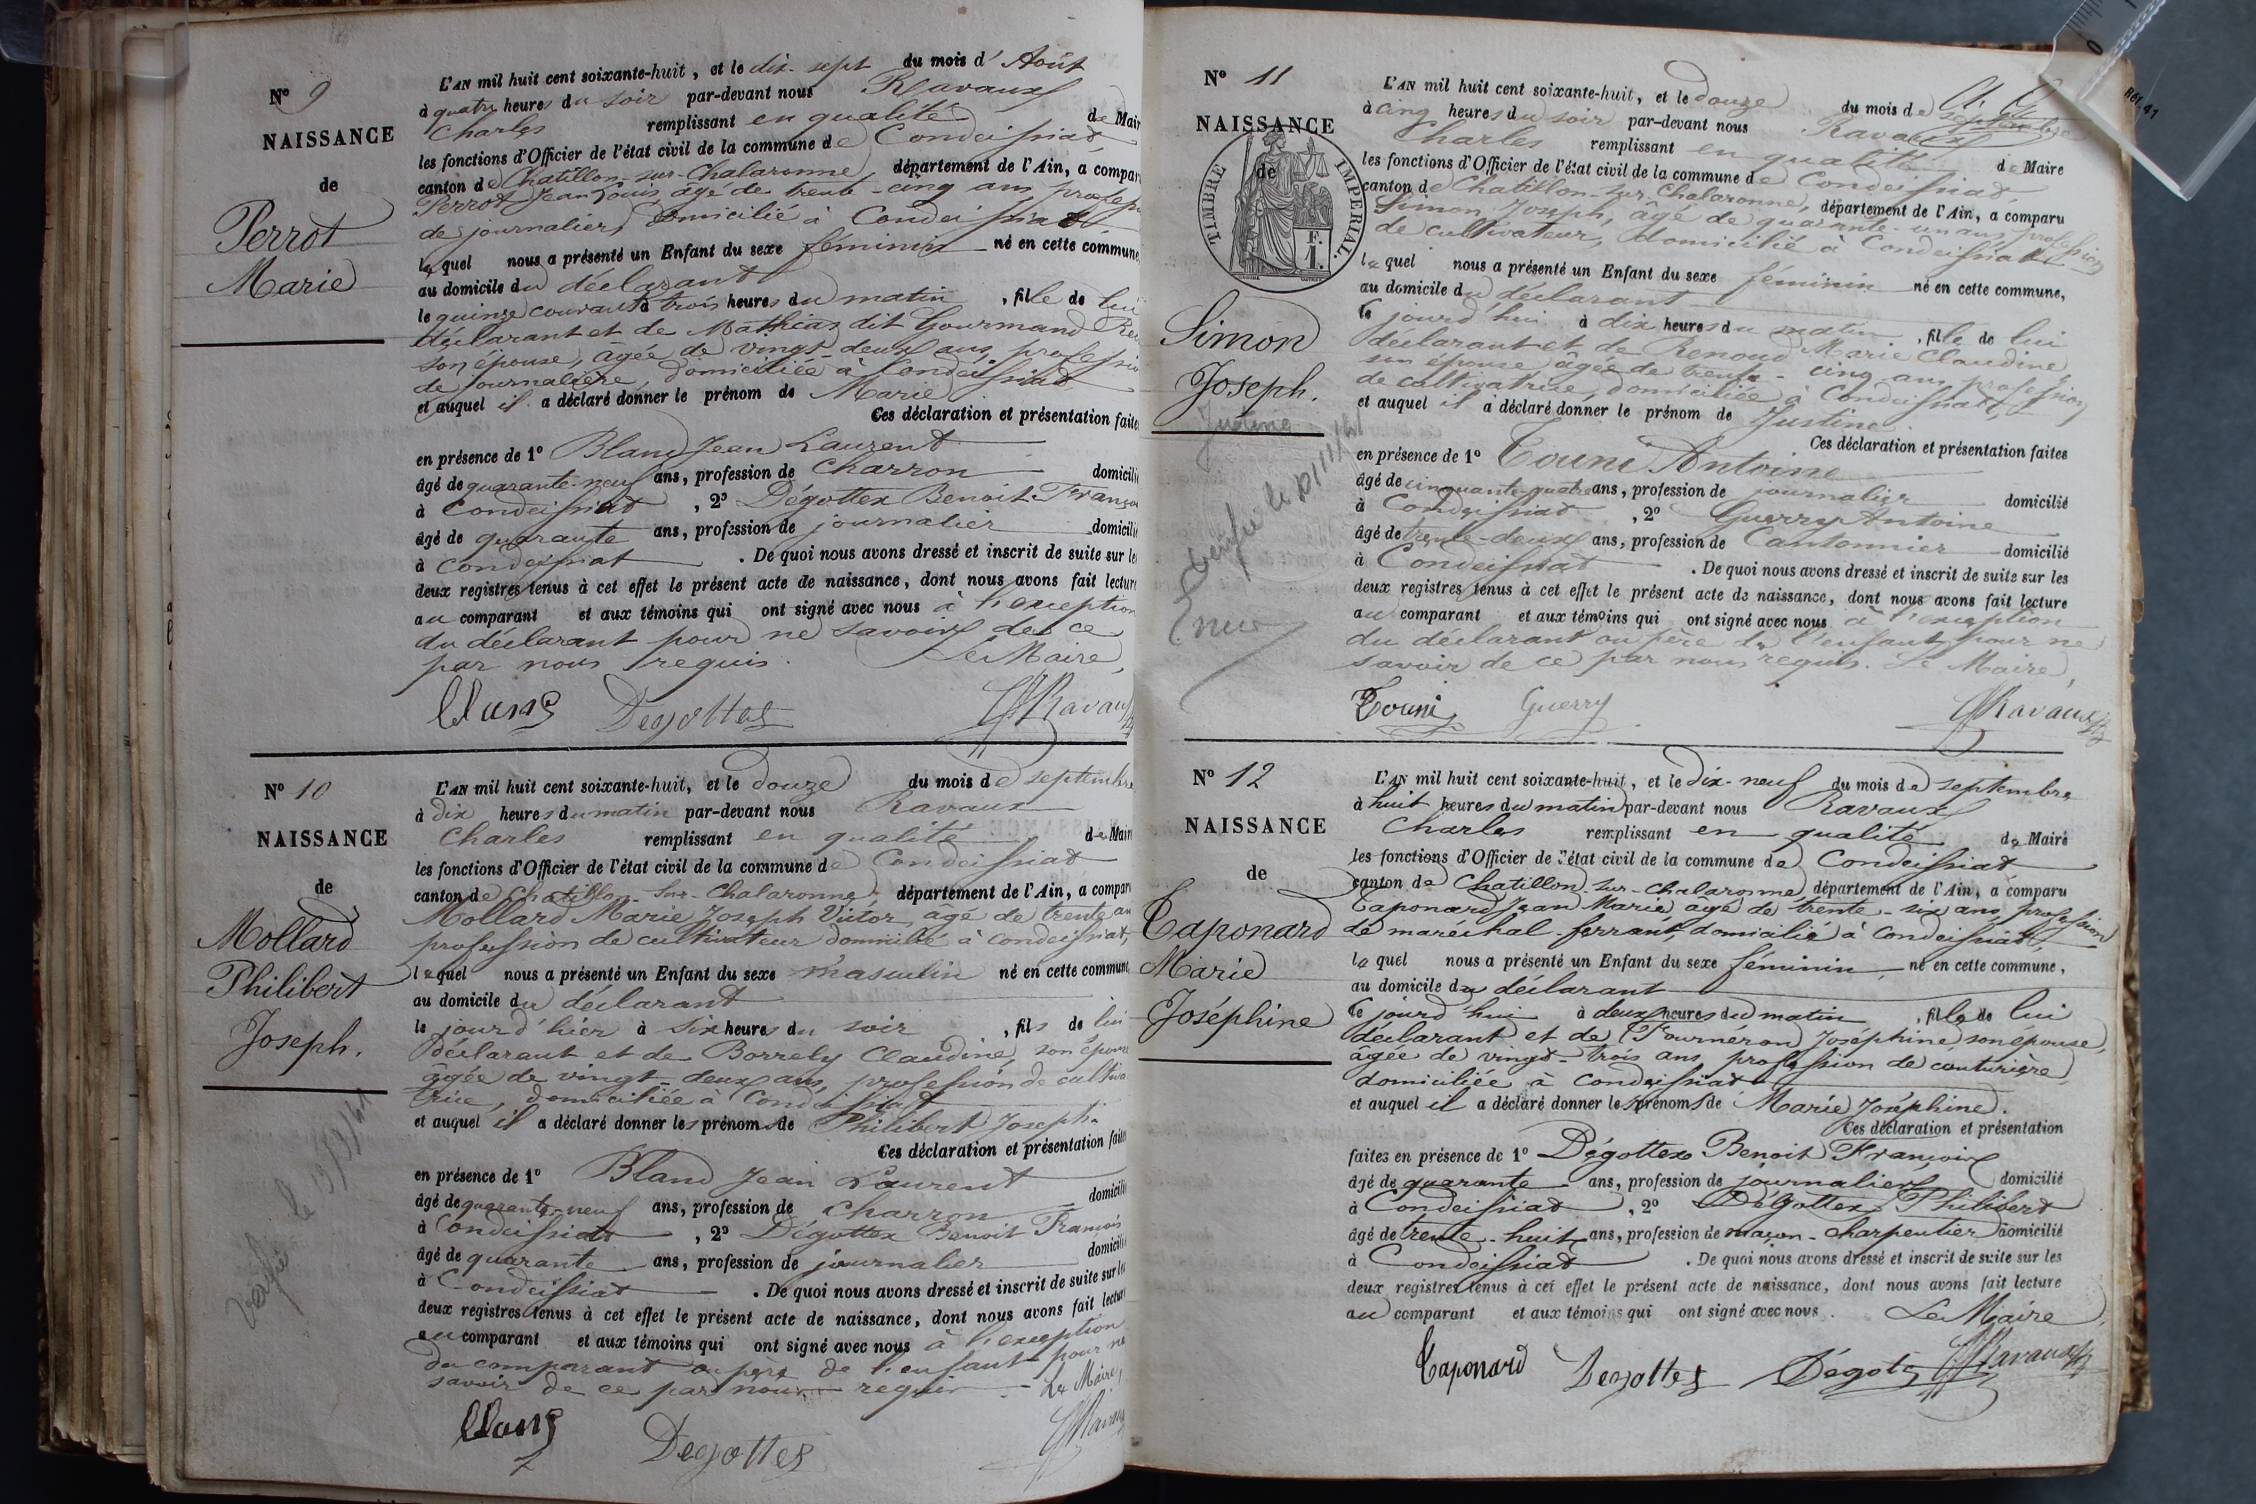 N° 9
NAISSANCE
de
Perrot
Marie
L'AN mil huit cent soixante-huit, et le dix-sept du mois d'Août
à quatre heures du soir par-devant nous Ravaux
Charles remplissant en qualité de Mair
les fonctions d'Officier de l'état civil de la commune de Condeissiat,
canton de Chatillon-sur-Chalaronne, département de l'Ain, a compar
Perrot Jean Louis, âgé de trente-cinq ans, profess
de journalier, domicilié à Condeissiat,
lequel nous a présenté un Enfant du sexe féminin né en cette commune
au domicile du déclarant
le quinze courant à trois heures du matin, fille de lui
déclarant et de Mathias dit Gourmand
son épouse, âgée de vingt-deux ans, professio
de journalière, domiciliée à Condeissiat
et auquel il a déclaré donner le prénom de Marie.
Ces déclaration et présentation faite
en présence de 1° Bland Jean Laurent
âgé de quarante-neuf ans, profession de charron domicilié
à Condeissiat, 2° Dégottex Benoit François
âgé de quarante ans, profession de journalier domicilié
à Condeissiat. De quoi nous avons dressé et inscrit de suite sur les
deux registres tenus à cet effet le présent acte de naissance, dont nous avons fait lecture
au comparant et aux témoins qui ont signé avec nous à l'exception
du déclarant pour ne savoir de ce
par nous requis. Le Maire,
Bland Degottex Ravaux
N° 10
NAISSANCE
de
Mollard
Philibert
Joseph.
L'AN mil huit cent soixante-huit, et le douze du mois de septembre
à dix heures du matin par-devant nous Ravaux
Charles remplissant en qualité de Maire
les fonctions d'Officier de l'état civil de la commune de Condeissiat
canton de Chatillon-sur-Chalaronne, département de l'Ain, a comparu
Mollard Marie Joseph Victor, âgé de trente ans
profession de cultivateur domicilié à Condeissiat,
lequel nous a présenté un Enfant du sexe masculin né en cette commune
au domicile du déclarant
le jour d'hier à six heures du soir, fils de lui
déclarant et de Borrely Claudine, son épouse
âgée de vingt-deux ans, profession de cultiva
trice, domiciliée à Condeissiat
et auquel il a déclaré donner les prénoms de Philibert Joseph.
Ces déclaration et présentation faites
en présence de 1° Bland Jean Laurent
âgé de quarante-neuf ans, profession de charron domicilié
à Condeissiat, 2° Dégottex Benoit François
âgé de quarante ans, profession de journalier domicilié
à Condeissiat. De quoi nous avons dressé et inscrit de suite sur les
deux registres tenus à cet effet le présent acte de naissance, dont nous avons fait lecture
au comparant et aux témoins qui ont signé avec nous à l'exception
du comparant ou père de l'enfant pour ne
savoir de ce par nous requis. Le Maire,
Bland Degottex Ravaux
N° 11
NAISSANCE
de
TIMBRE IMPERIAL.
F.
1.
Simon
Joseph.
Justine
L'AN mil huit cent soixante-huit, et le douze du mois de septembre
à cinq heures du soir par-devant nous Ravaux
Charles remplissant en qualité de Maire
les fonctions d'Officier de l'état civil de la commune de Condeissiat,
canton de Chatillon-sur-Chalaronne, département de l'Ain, a comparu
Simon Joseph, âgé de quarante-un ans, profession
de cultivateur, domicilié à Condeissiat
lequel nous a présenté un Enfant du sexe féminin né en cette commune,
au domicile du déclarant
le jourd'hui à dix heures du matin, fille de lui
déclarant et de Renoud Marie Claudine
son épouse âgée de trente-cinq ans, profession
de cultivatrice, domiciliée à Condeissiat,
et auquel il a déclaré donner le prénom de Justine.
Ces déclaration et présentation faites
en présence de 1° Touni Antoine
âgé de cinquante-quatre ans, profession de journalier domicilié
à Condeissiat, 2° Guerry Antoine
âgé de trente-deux ans, profession de Cantonnier domicilié
à Condeissiat. De quoi nous avons dressé et inscrit de suite sur les
deux registres tenus à cet effet le présent acte de naissance, dont nous avons fait lecture
au comparant et aux témoins qui ont signé avec nous à l'exception
du déclarant ou père de l'enfant pour ne
savoir de ce par nous requis. Le Maire,
Touni Guerry Ravaux
N° 12
NAISSANCE
de
Taponard
Marie
Joséphine
L'AN mil huit cent soixante-huit, et le dix-neuf du mois de septembre
à huit heures du matin par-devant nous Ravaux
Charles remplissant en qualité de Maire
les fonctions d'Officier de l'état civil de la commune de Condeissiat
canton de Chatillon-sur-Chalaronne, département de l'Ain, a comparu
Taponard Jean Marie âgé de trente-six ans, profession
de maréchal-ferrant, domicilié à Condeissiat,
lequel nous a présenté un Enfant du sexe féminin né en cette commune,
au domicile du déclarant
le jourd'hui à deux heures du matin, fille de lui
déclarant et de Fournéron Joséphine son épouse,
âgée de vingt-trois ans, profession de couturière,
domiciliée à Condeissiat
et auquel il a déclaré donner les prénoms de Marie Joséphine.
Ces déclaration et présentation
faites en présence de 1° Dégottex Benoit François
âgé de quarante ans, profession de journalier domicilié
à Condeissiat, 2° Dégottex Philibert
âgé de trente-huit ans, profession de maçon-charpentier domicilié
à Condeissiat. De quoi nous avons dressé et inscrit de suite sur les
deux registres tenus à cet effet le présent acte de naissance, dont nous avons fait lecture
au comparant et aux témoins qui ont signé avec nous. Le Maire,
Taponard Degottex Dégot Ravaux